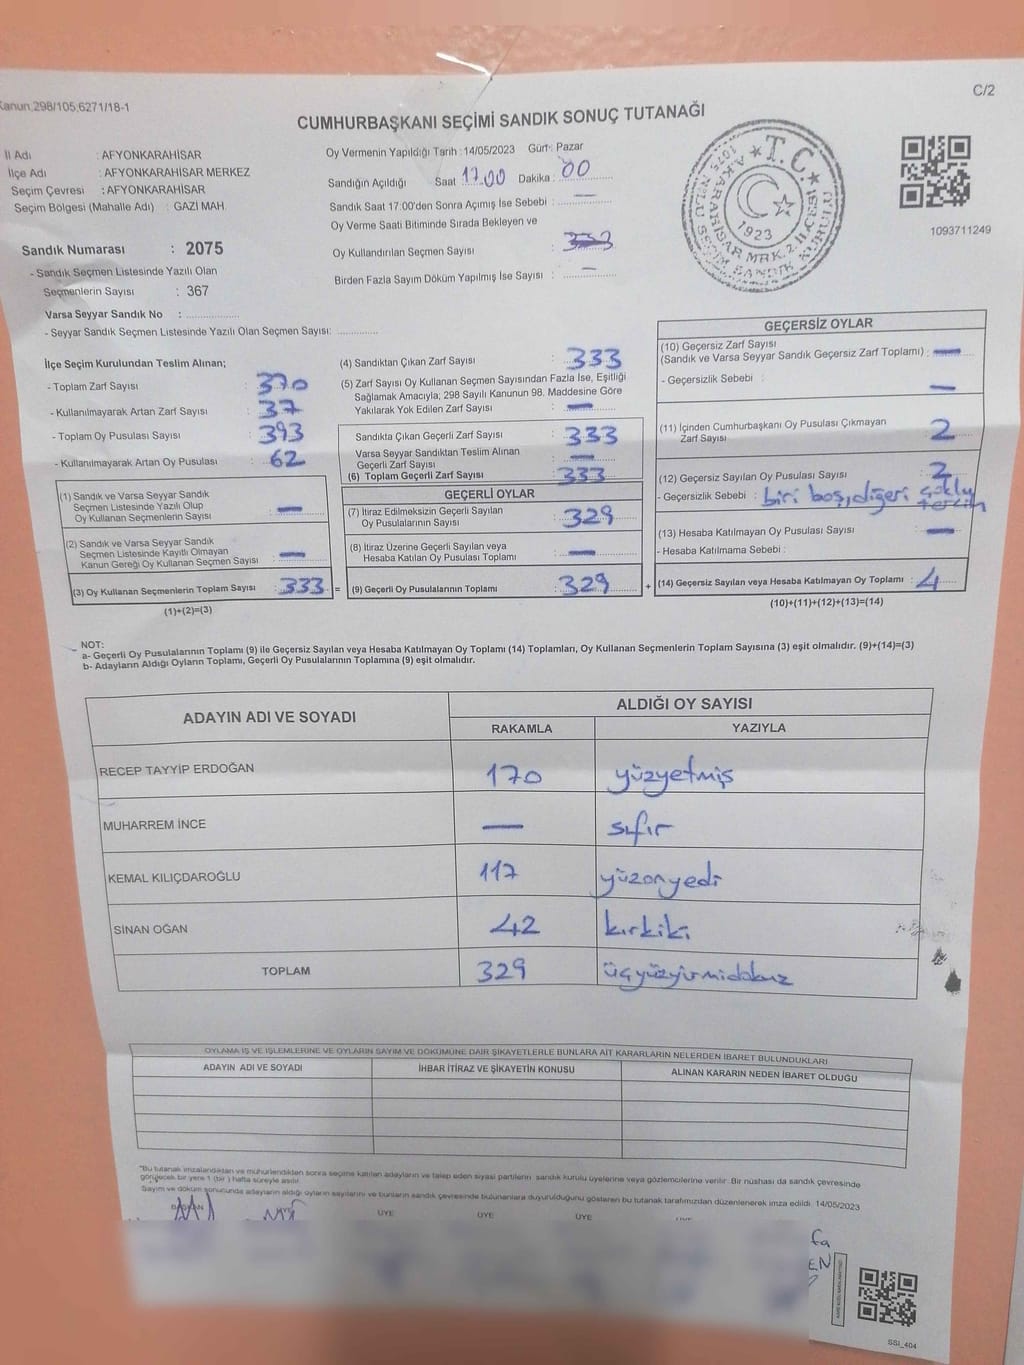 Kanun,298/105,6271/18-1
C/2
CUMHURBAŞKANI SEÇİMİ SANDIK SONUÇ TUTANAĞI
İl Adı : AFYONKARAHİSAR
İlçe Adı : AFYONKARAHİSAR MERKEZ
Seçim Çevresi : AFYONKARAHİSAR
Seçim Bölgesi (Mahalle Adı) : GAZİ MAH.
Sandık Numarası : 2075
- Sandık Seçmen Listesinde Yazılı Olan
Seçmenlerin Sayısı : 367
Varsa Seyyar Sandık No :
- Seyyar Sandık Seçmen Listesinde Yazılı Olan Seçmen Sayısı:
Oy Vermenin Yapıldığı Tarih :14/05/2023 Gün: Pazar
Sandığın Açıldığı Saat 17.00 Dakika : 00
Sandık Saat 17:00'den Sonra Açımış İse Sebebi : —
Oy Verme Saati Bitiminde Sırada Bekleyen ve
Oy Kullandırılan Seçmen Sayısı : 333
Birden Fazla Sayım Döküm Yapılmış İse Sayısı : —
★ T.C. ★
1923
1093711249
İlçe Seçim Kurulundan Teslim Alınan;
- Toplam Zarf Sayısı : 370
- Kullanılmayarak Artan Zarf Sayısı : 37
- Toplam Oy Pusulası Sayısı : 393
- Kullanılmayarak Artan Oy Pusulası : 62
(1) Sandık ve Varsa Seyyar Sandık
Seçmen Listesinde Yazılı Olup
Oy Kullanan Seçmenlerin Sayısı : —
(2) Sandık ve Varsa Seyyar Sandık
Seçmen Listesinde Kayıtlı Olmayan
Kanun Gereği Oy Kullanan Seçmen Sayısı : —
(3) Oy Kullanan Seçmenlerin Toplam Sayısı : 333 =
(1)+(2)=(3)
(4) Sandıktan Çıkan Zarf Sayısı : 333
(5) Zarf Sayısı Oy Kullanan Seçmen Sayısından Fazla İse, Eşitliği
Sağlamak Amacıyla; 298 Sayılı Kanunun 98. Maddesine Göre
Yakılarak Yok Edilen Zarf Sayısı : —
Sandıkta Çıkan Geçerli Zarf Sayısı : 333
Varsa Seyyar Sandıktan Teslim Alınan
Geçerli Zarf Sayısı : —
(6) Toplam Geçerli Zarf Sayısı : 333
GEÇERLİ OYLAR
(7) İtiraz Edilmeksizin Geçerli Sayılan
Oy Pusulalarının Sayısı : 329
(8) İtiraz Üzerine Geçerli Sayılan veya
Hesaba Katılan Oy Pusulası Toplamı : —
(9) Geçerli Oy Pusulalarının Toplamı : 329 +
GEÇERSİZ OYLAR
(10) Geçersiz Zarf Sayısı
(Sandık ve Varsa Seyyar Sandık Geçersiz Zarf Toplamı) : —
- Geçersizlik Sebebi : —
(11) İçinden Cumhurbaşkanı Oy Pusulası Çıkmayan
Zarf Sayısı : 2
(12) Geçersiz Sayılan Oy Pusulası Sayısı : 2
- Geçersizlik Sebebi : biri boş, diğeri çoklu
tercih
(13) Hesaba Katılmayan Oy Pusulası Sayısı : —
- Hesaba Katılmama Sebebi :
(14) Geçersiz Sayılan veya Hesaba Katılmayan Oy Toplamı : 4
(10)+(11)+(12)+(13)=(14)
NOT:
a- Geçerli Oy Pusulalarının Toplamı (9) ile Geçersiz Sayılan veya Hesaba Katılmayan Oy Toplamı (14) Toplamları, Oy Kullanan Seçmenlerin Toplam Sayısına (3) eşit olmalıdır. (9)+(14)=(3)
b- Adayların Aldığı Oyların Toplamı, Geçerli Oy Pusulalarının Toplamına (9) eşit olmalıdır.
ADAYIN ADI VE SOYADI
ALDIĞI OY SAYISI
RAKAMLA YAZIYLA
RECEP TAYYİP ERDOĞAN 170 yüzyetmiş
MUHARREM İNCE — sıfır
KEMAL KILIÇDAROĞLU 117 yüzonyedi
SİNAN OĞAN 42 kırkiki
TOPLAM 329 üçyüzyirmidokuz
OYLAMA İŞ VE İŞLEMLERİNE VE OYLARIN SAYIM VE DÖKÜMÜNE DAİR ŞİKAYETLERLE BUNLARA AİT KARARLARIN NELERDEN İBARET BULUNDUKLARI
ADAYIN ADI VE SOYADI İHBAR İTİRAZ VE ŞİKAYETİN KONUSU ALINAN KARARIN NEDEN İBARET OLDUĞU
*Bu tutanak imzalandıktan ve mühürlendikten sonra seçime katılan adayların ve talep eden siyasi partilerin sandık kurulu üyelerine veya gözlemcilerine verilir. Bir nüshası da sandık çevresinde
görülecek bir yere 1 (bir) hafta süreyle asılır.
Sayım ve döküm sonucunda adayların aldığı oyların sayılarını ve bunların sandık çevresinde bulunanlara duyurulduğunu gösteren bu tutanak tarafımızdan düzenlenerek imza edildi. 14/05/2023
BAŞKAN ÜYE ÜYE ÜYE
SSI_404